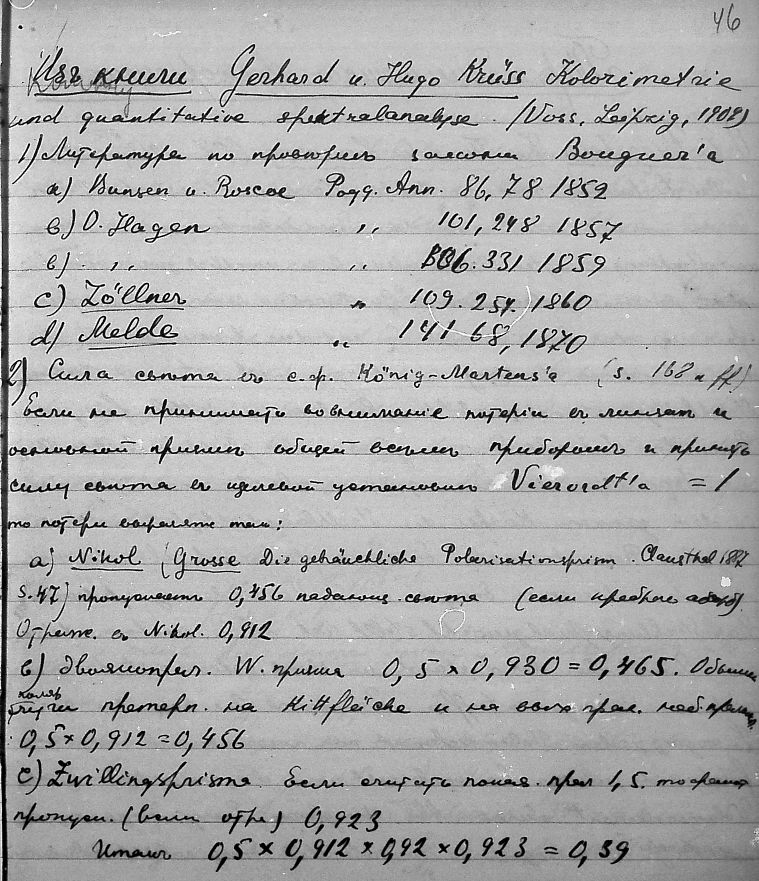 46
Изъ книги Gerhard u. Hugo Krüss Kolorimetrie
und quantitative spektralanalyse. (Voss, Leipzig, 1909)
1) Литература по провѣркѣ закона Bouguer'a
a) Bunsen u. Roscoe Pogg. Ann. 86, 78 1852
b) O. Hagen " 101, 248 1857
b) " " 106. 331 1859
c) Zöllner " 109. 254. 1860
d) Melde " 141 68, 1870
2) Сила свѣта въ с.ф. König-Martens'a (s. 168 u ff)
Если не принимать во вниманіе потери въ линзах и
основной призмѣ общей всѣмъ приборамъ и принять
силу свѣта въ щелевой установкѣ Vierordt'a = 1
то потери выразятся так:
a) Nikol (Grosse Die gebräuchliche Polarisationsprism. Clausthal 1887
S. 47) пропускаетъ 0,456 падающ. свѣта (если
Отраж. въ Nikol. 0,912
b) Двоякопрел. W. призма 0,5 × 0,930 = 0,465. Обыкн
претерп. на Kittfläche и на
0,5 × 0,912 = 0,456
c) Zwillingsprisma. Если считать показ. прел 1,5. то
пропуск. (вслѣд отр.) 0,923
Итакъ 0,5 × 0,912 × 0,92 × 0,923 = 0,39